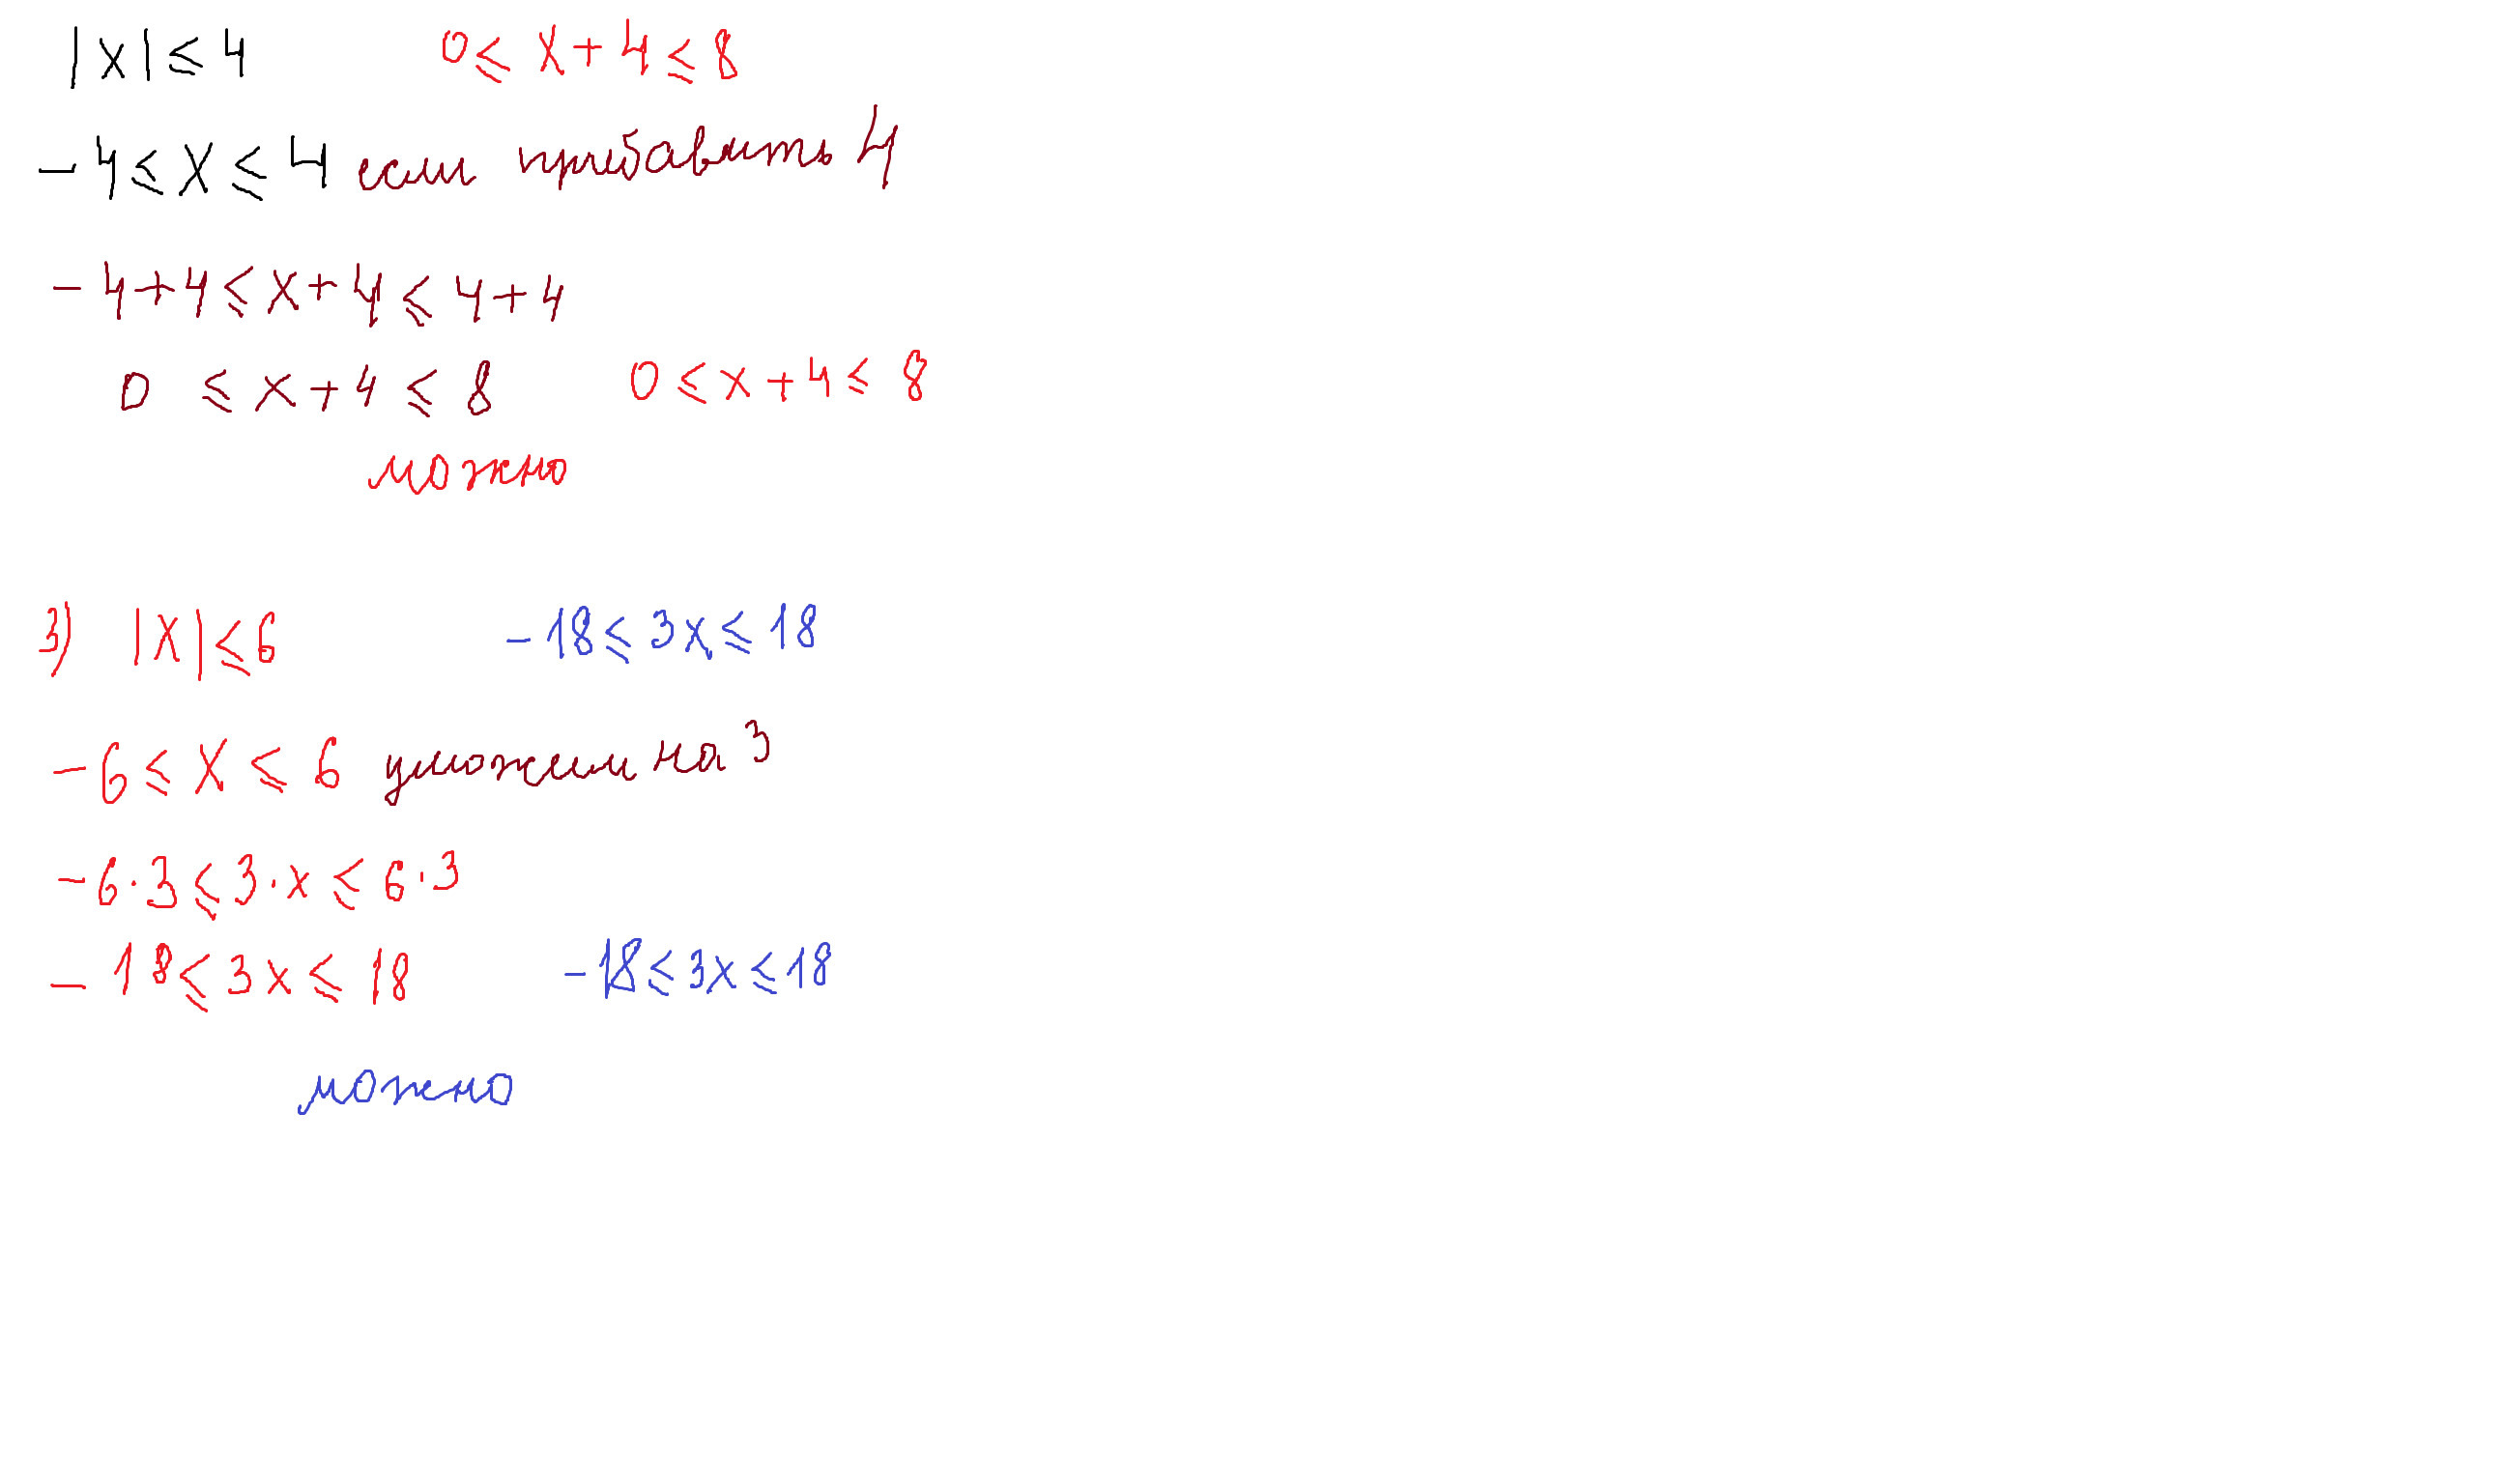 |x| ≤ 4 0 ≤ x + 4 ≤ 8
- 4 ≤ x ≤ 4 если прибавить 4
- 4 + 4 ≤ x + 4 ≤ 4 + 4
0 ≤ x + 4 ≤ 8 0 ≤ x + 4 ≤ 8
можно
3) |x| ≤ 6 - 18 ≤ 3x ≤ 18
- 6 ≤ x ≤ 6 умножим на 3
- 6 · 3 ≤ 3 · x ≤ 6 · 3
- 18 ≤ 3x ≤ 18 - 18 ≤ 3x ≤ 18
можно